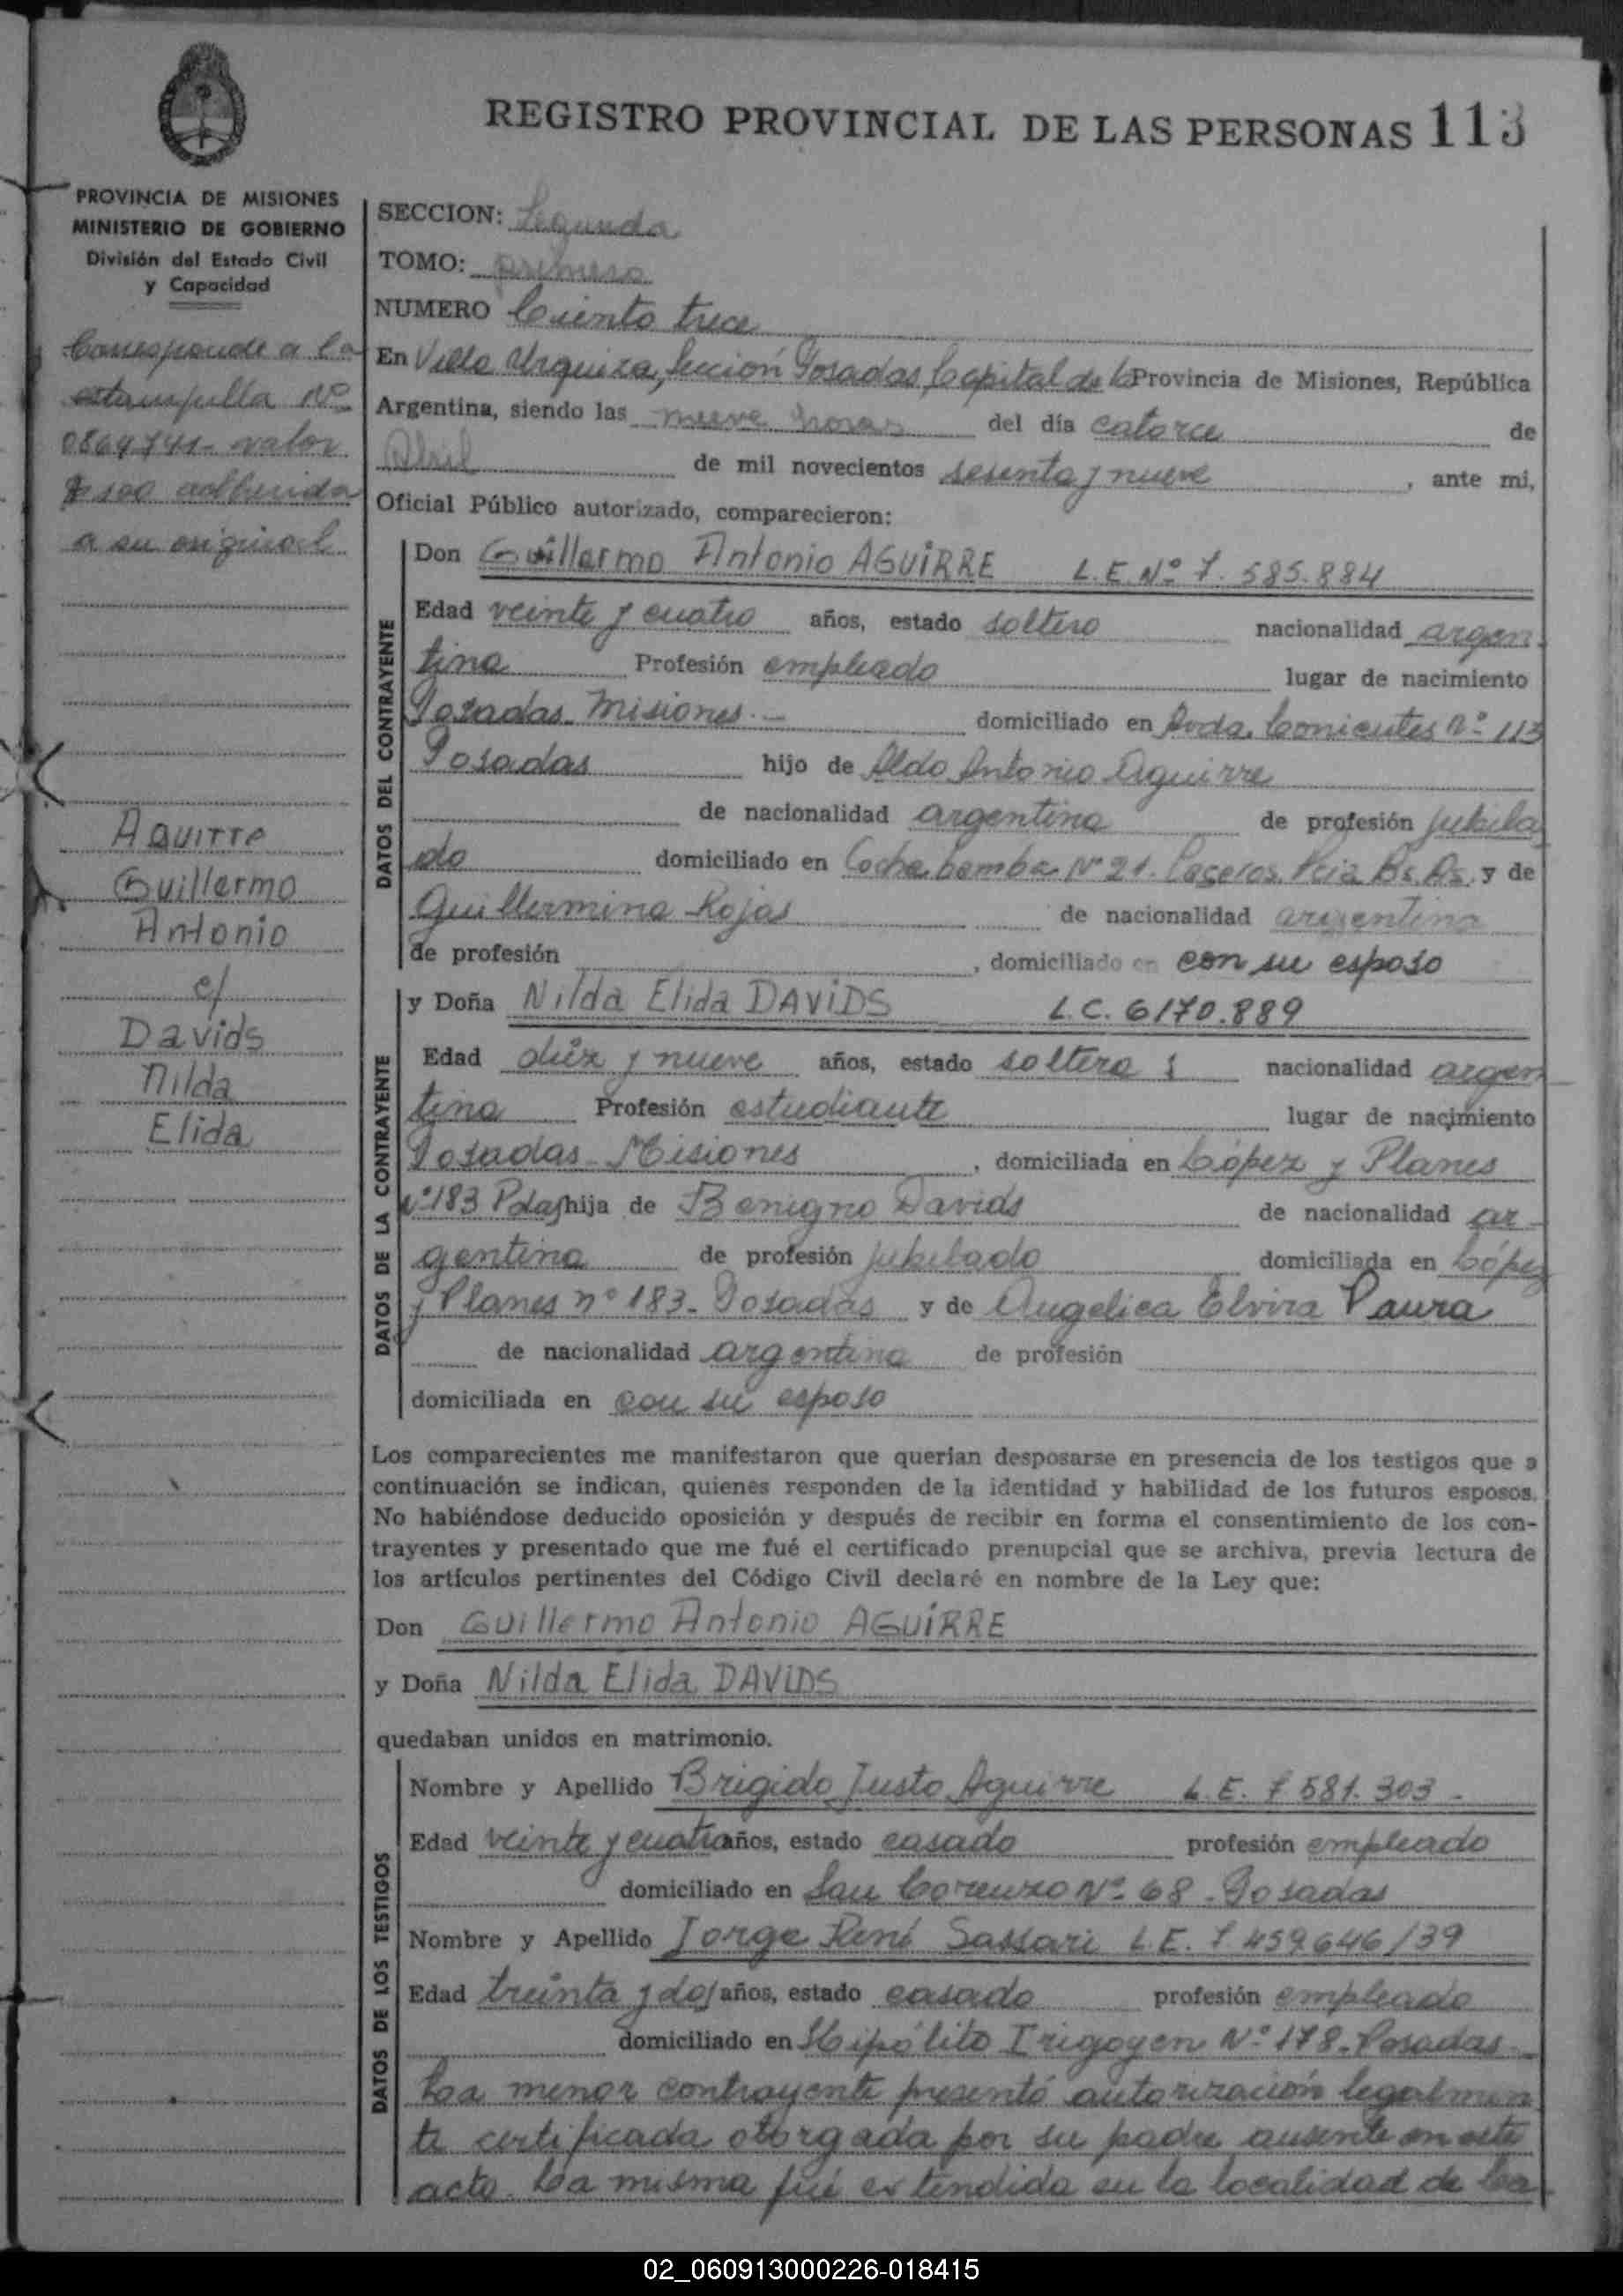 REGISTRO PROVINCIAL DE LAS PERSONAS 113
PROVINCIA DE MISIONES
MINISTERIO DE GOBIERNO
División del Estado Civil
y Capacidad
Corresponde a la
estampilla Nº
0864741- valor
$ 100 adherida
a su original
Aguirre
Guillermo
Antonio
c/
Davids
Nilda
Elida
SECCION: Segunda
TOMO: primero
NUMERO Ciento trece
En Villa Urquiza, Sección Posadas, Capital de la Provincia de Misiones, República
Argentina, siendo las nueve horas del día catorce de
Abril de mil novecientos sesenta y nueve, ante mi,
Oficial Público autorizado, comparecieron:
DATOS DEL CONTRAYENTE
Don Guillermo Antonio AGUIRRE L.E. Nº 7.585.884
Edad veinte y cuatro años, estado soltero nacionalidad argen
tina Profesión empleado lugar de nacimiento
Posadas Misiones.- domiciliado en Avda. Corrientes Nº 113
Posadas hijo de Aldo Antonio Aguirre
de nacionalidad argentina de profesión jubila
do domiciliado en Cochabamba Nº 21. Caseros. Pcia Bs. As. y de
Guillermina Rojas de nacionalidad argentina
de profesión , domiciliado en con su esposo
DATOS DE LA CONTRAYENTE
y Doña Nilda Elida DAVIDS L.C. 6170.889
Edad diez y nueve años, estado soltera nacionalidad argen
tina Profesión estudiante lugar de nacimiento
Posadas - Misiones, domiciliada en López y Planes
nº 183 Pdas hija de Benigno Davids de nacionalidad ar-
gentina de profesión jubilado domiciliada en López
y Planes nº 183- Posadas y de Angelica Elvira Paura
de nacionalidad argentina de profesión
domiciliada en con su esposo
Los comparecientes me manifestaron que querían desposarse en presencia de los testigos que a
continuación se indican, quienes responden de la identidad y habilidad de los futuros esposos.
No habiéndose deducido oposición y después de recibir en forma el consentimiento de los con-
trayentes y presentado que me fué el certificado prenupcial que se archiva, previa lectura de
los artículos pertinentes del Código Civil declaré en nombre de la Ley que:
Don Guillermo Antonio AGUIRRE
y Doña Nilda Elida DAVIDS
quedaban unidos en matrimonio.
DATOS DE LOS TESTIGOS
Nombre y Apellido Brigido Justo Aguirre L.E. 7 581.303 -
Edad veinte y cuatro años, estado casado profesión empleado
domiciliado en San Lorenzo Nº 68 - Posadas
Nombre y Apellido Jorge René Sassari L.E. 7.459.646/39
Edad treinta y dos años, estado casado profesión empleado
domiciliado en Hipólito Irigoyen Nº 178. Posadas -
La menor contrayente presentó autorización legalmen
te certificada otorgada por su padre ausente en este
acto. La misma fué extendida en la localidad de Ca
02_060913000226-018415